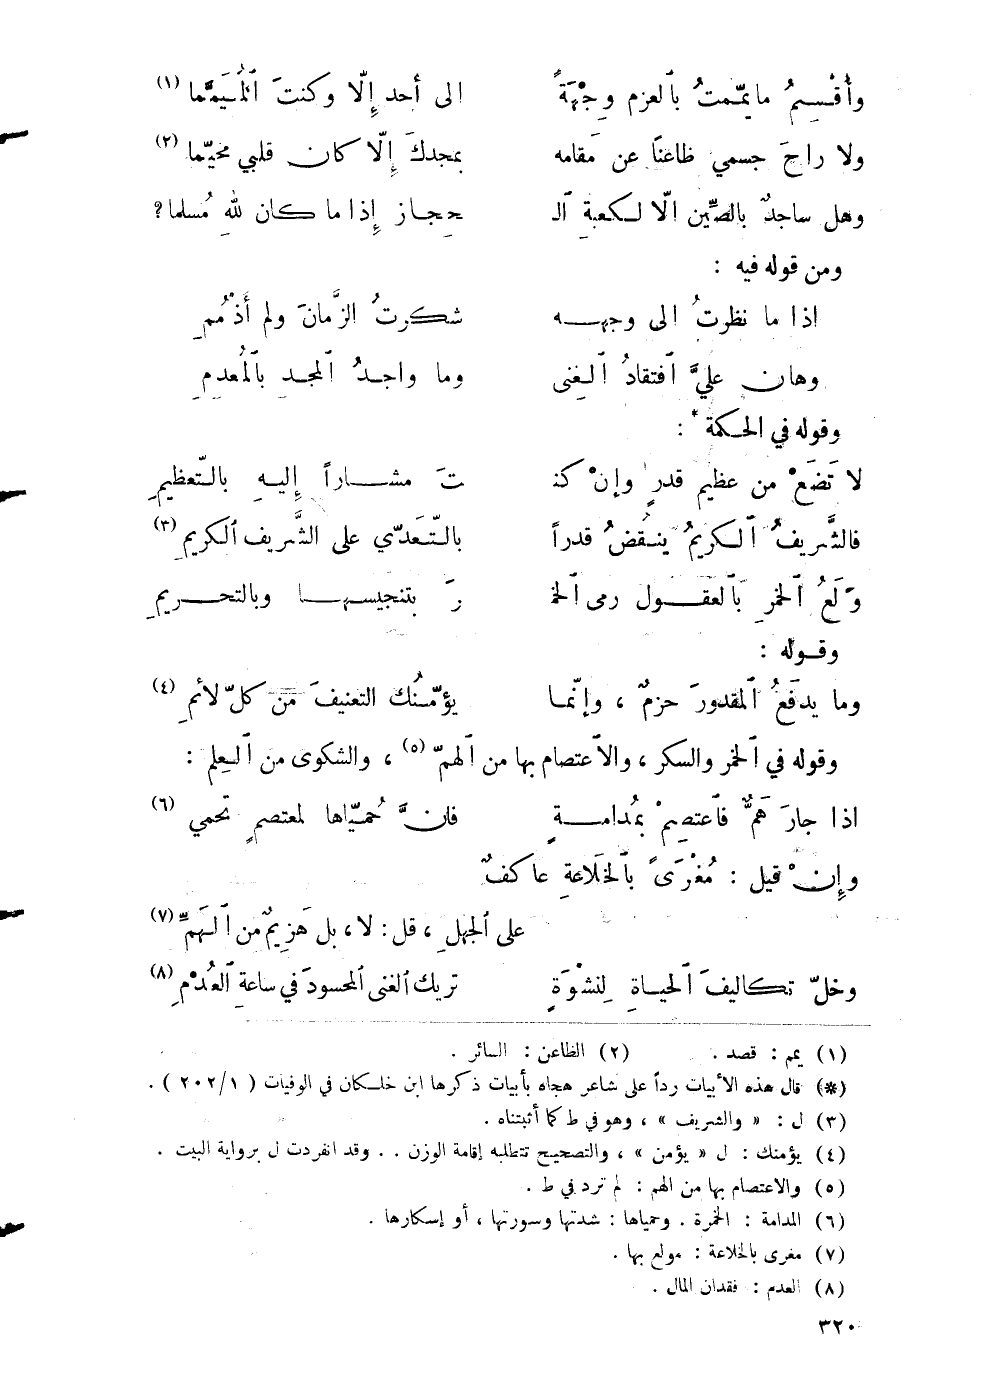 وأُقْسِمُ مايمّمتُ بٱلعزم وِجْهَةً الى أحد إلّا وكنتَ ٱلمُيَمَّما (١)
ولا راحَ جسمي ظاعناً عن مَقامه بمجدكَ إلّا كان قلبي مخيّما (٢)
وهل ساجدٌ بالصِّين الّا لكعبةِ ٱلـ حِجاز إذا ما كان للهِ مُسلما؟
ومن قوله فيه :
اذا ما نظرتُ الى وجهه شكرتُ الزَّمانَ ولم أَذْمُمِ
وهان عليَّ ٱفتقادُ ٱلغِنى وما واجدُ ٱلمجد بٱلمُعدِمِ
وقوله في الحكمة * :
لا تَضَعْ من عظيم قدرٍ وإنْ كنـ ـتَ مشاراً إليهِ بالتّعظيمِ
فالشَّريفُ ٱلكريمُ ينقُضُ قدراً بالتّعَدّي على الشَّريف ٱلكريمِ (٣)
وَلَعُ ٱلخمرِ بٱلعقول رمى ٱلخمـ ـرَ بتنجيسها وبالتحريمِ
وقوله :
وما يدفَعُ ٱلمقدورَ حزمٌ ، وإنّما يؤمّنُك التعنيفَ من كلّ لائمِ (٤)
وقوله في ٱلخمر والسكر ، والاعتصام بها من ٱلهمّ (٥) ، والشكوى من ٱلعِلم :
اذا جارَ هَمٌّ فٱعتصِمْ بمُدامةٍ فانَّ حُميّاها لمعتصمٍ تحمي (٦)
وإنْ قيل : مُغْرَىً بٱلخَلاعةِ عاكفٌ
على ٱلجهلِ ، قل : لا ، بل هَزيمٌ من ٱلهَمِّ (٧)
وخلّ تكاليفَ ٱلحياةِ لِنشْوَةٍ تريك ٱلغنى ٱلمحسودَ في ساعةِ ٱلعُدْمِ (٨)
(١) يمم : قصد . (٢) الظاعن : السائر .
(*) قال هذه الأبيات رداً على شاعر هجاه بأبيات ذكرها ابن خلكان في الوفيات ( ١/ ٢٠٢ ) .
(٣) ل : « والشريف » ، وهو في ط كما أثبتناه .
(٤) يؤمنك : ل « يؤمن » ، والتصحيح تتطلبه إقامة الوزن . . وقد انفردت ل برواية البيت .
(٥) والاعتصام بها من الهم : لم ترد في ط .
(٦) المدامة : الخمرة . وحمياها : شدتها وسورتها ، أو إسكارها .
(٧) مغرى بالخلاعة : مولع بها .
(٨) العدم : فقدان المال .
٣٢٠